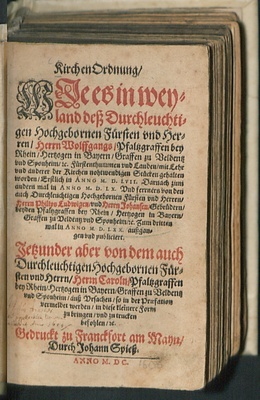 KirchenOrdnung/
Wie es in wey-
land deß Durchleuchti-
gen Hochgebornen Fürsten vnd Her-
ren/ Herrn Wolffgangs/ Pfaltzgraffen bey
Rhein/ Hertzogen in Bayern/ Graffen zu Veldentz
vnd Sponheim/ ꝛc. Fürstenthummen vnd Landen/ mit Lehr
vnd anderer der Kirchen nothwendigen Stücken gehalten
worden/ Erstlich in ANNO M. D. LVII. Darnach zum
andern mal in ANNO M. D. LX. Vnd ferrners von den
auch Durchleuchtigen Hochgebornen Fürsten vnd Herren/
Herrn Philips Ludwigen vnd Herrn Johansen/ Gebrüdern/
beyden Pfaltzgraffen bey Rhein/ Hertzogen in Bayern/
Graffen zu Veldentz vnd Sponheim/ ꝛc. Zum dritten
mal in ANNO M. D. LXX. außgan-
gen vnd publiciert.
Jetzunder aber von dem auch
Durchleuchtigen Hochgebornen Für-
sten vnd Herrn/ Herrn Caroln/ Pfaltzgraffen
bey Rhein/ Hertzogen in Bayern/ Graffen zu Veldentz
vnd Sponheim/ auß Vrsachen/ so in der Præfation
vermeldet worden/ in diese kleinere Form
zu bringen/ vnd zu trucken
befohlen/ ꝛc.
Gedruckt zu Franckfort am Mayn/
Durch Johann Spieß.
ANNO M. DC.